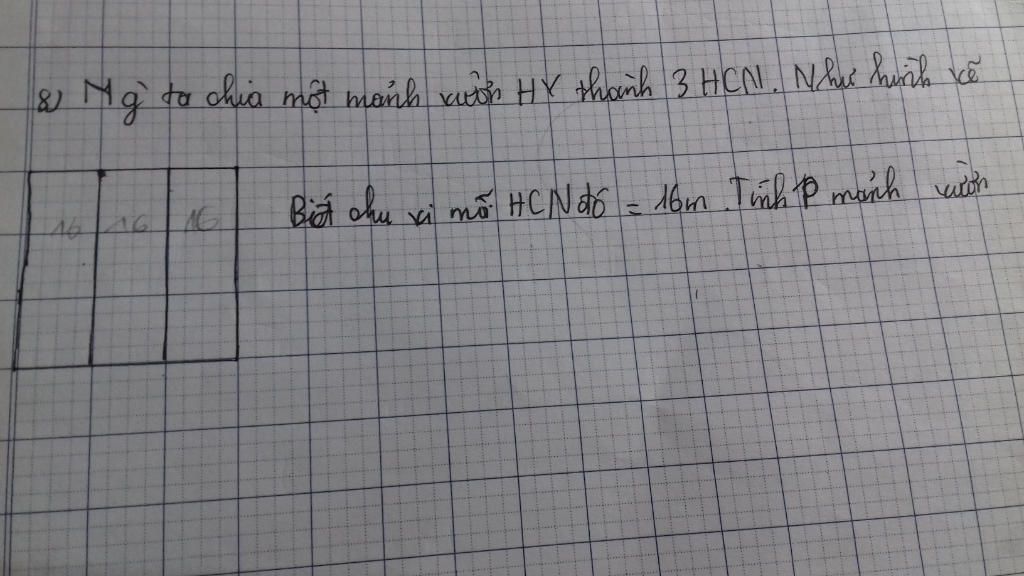 8) Ng` ta chia một mảnh vườn HV thành 3 HCN. Như hình vẽ
16 16 16
Biết chu vi mỗ HCN đó = 16m. Tính P mảnh vườn